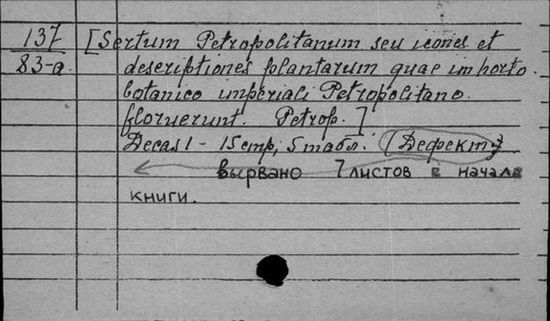 137 [Sertum Petropolitanum seu icones et
83-a descriptiones plantarum quae in horto
botanico imperiali Petropolitano
floruerunt. Petrop.]
Decas I - 15 стр., 5 табл. (Дефект)
вырвано 7 листов с начала
книги.